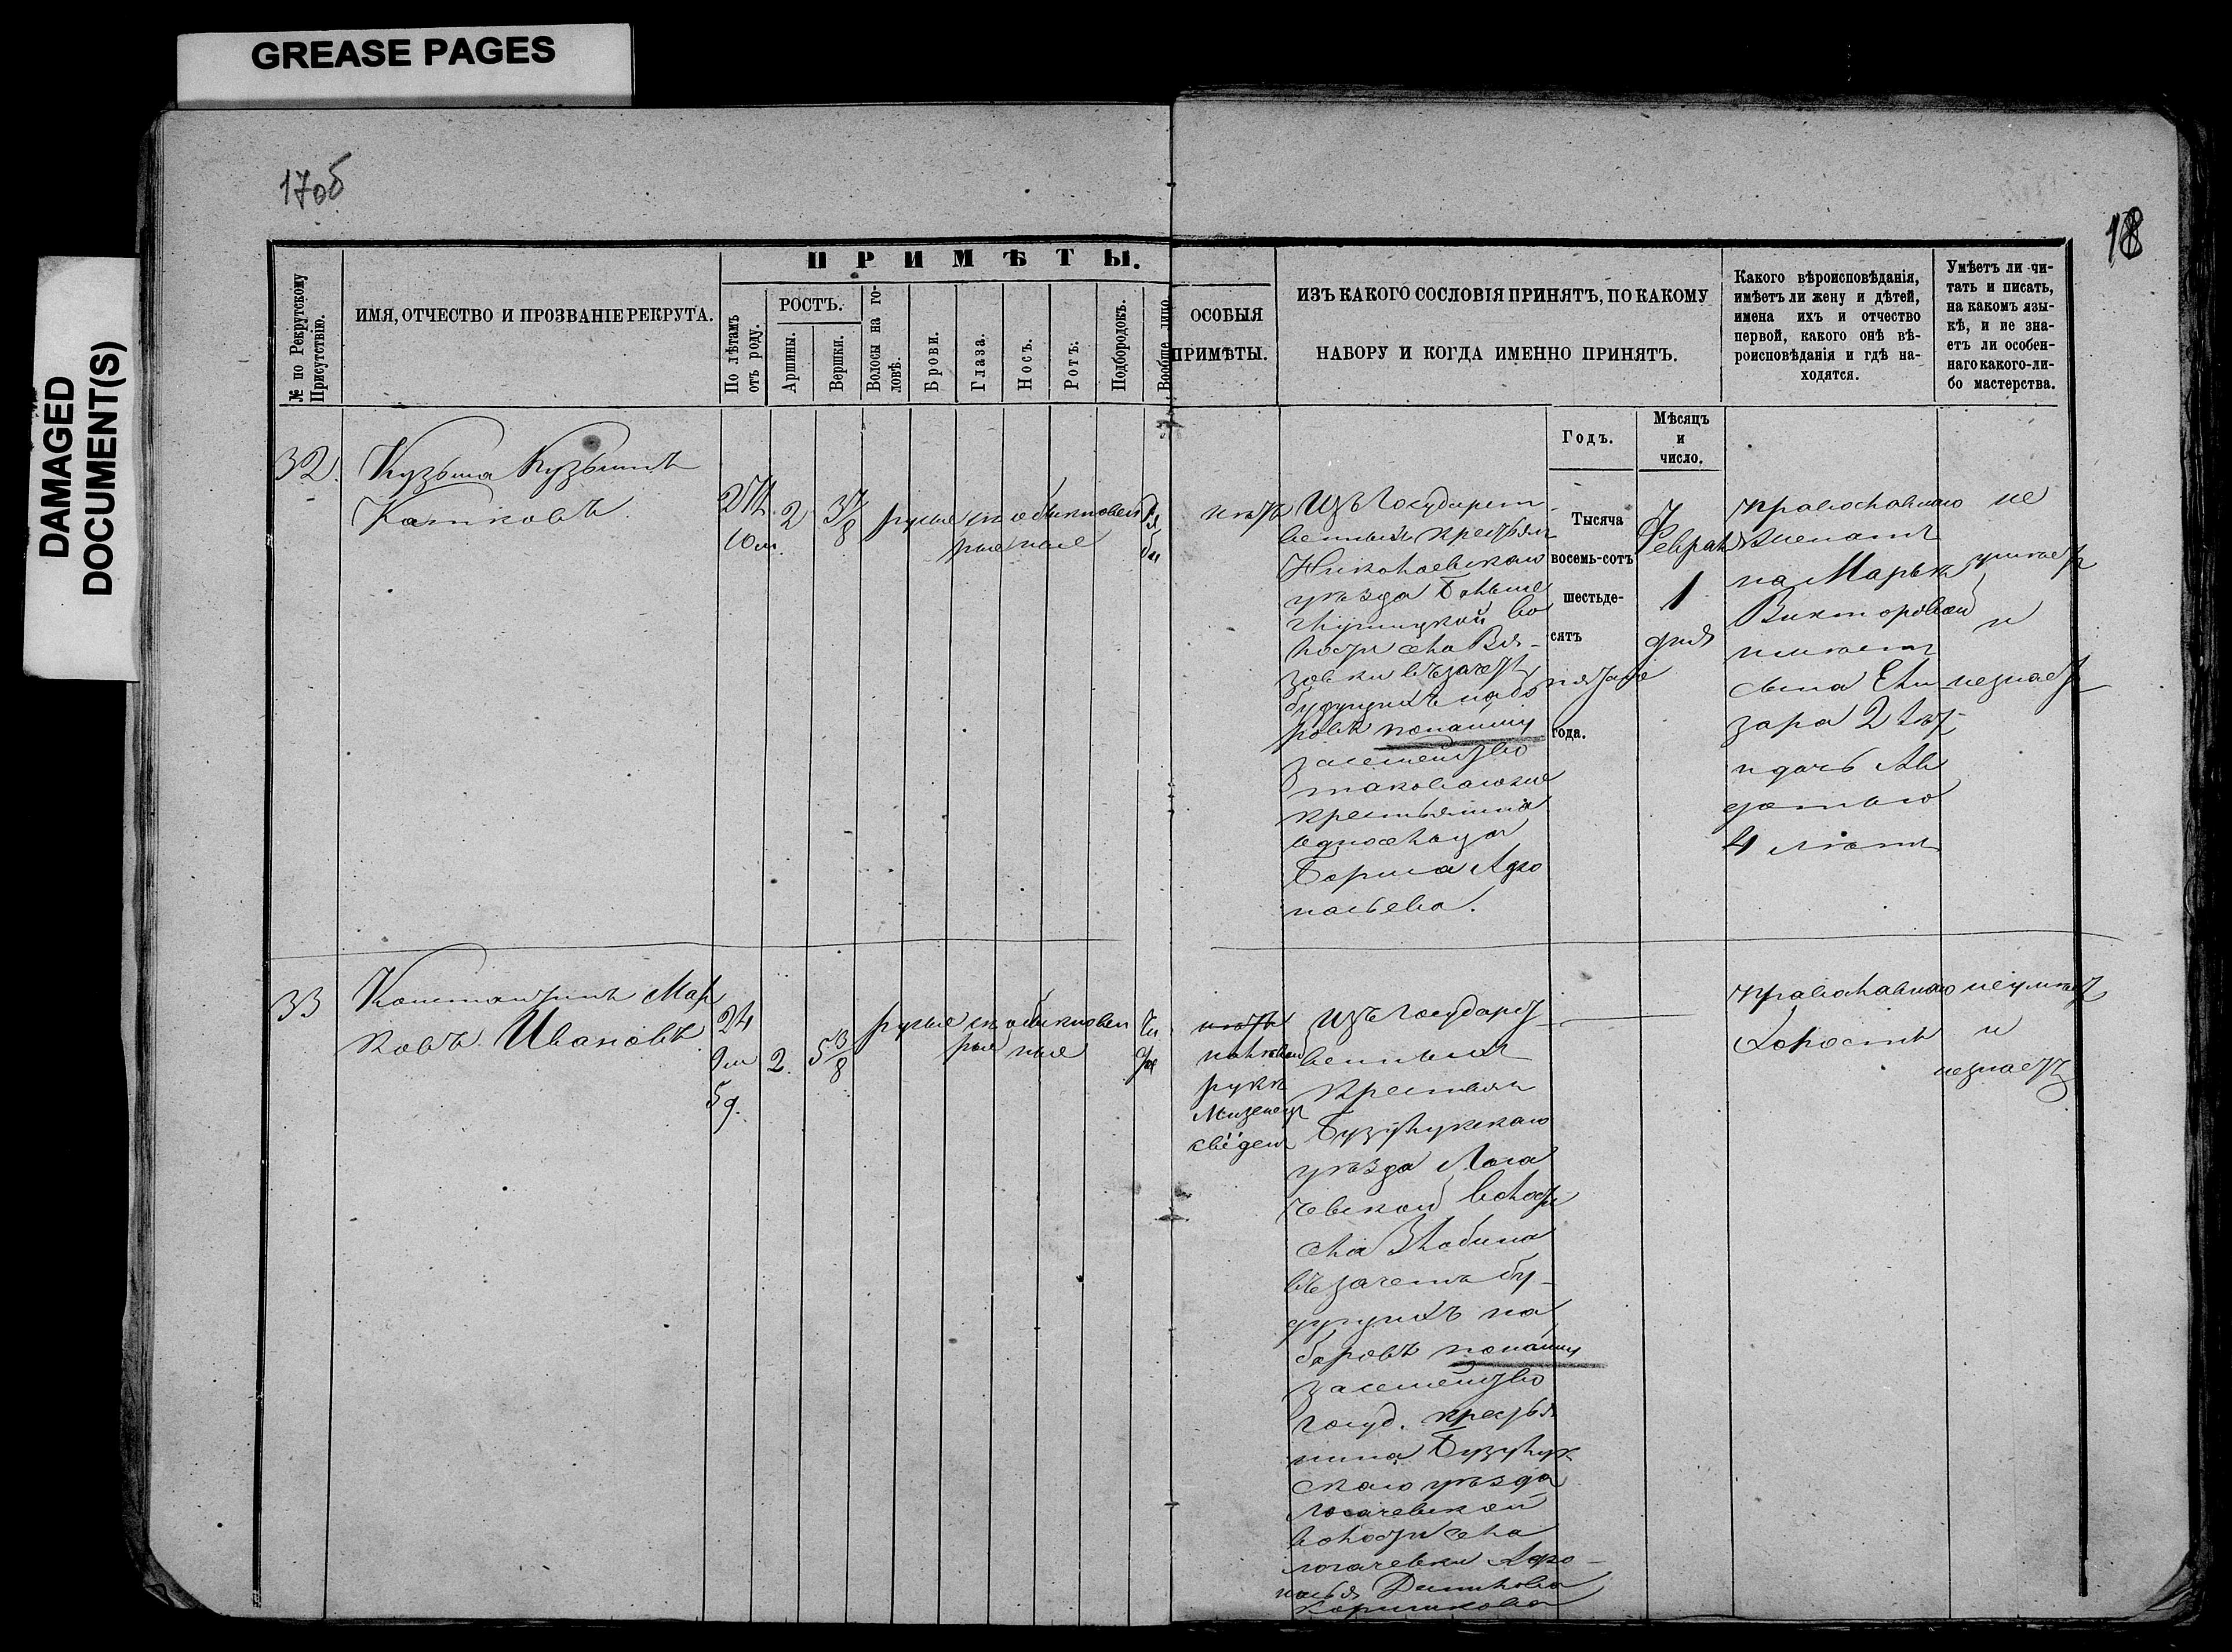 GREASE PAGES
DAMAGED
DOCUMENT(S)
17об
18
№ по Рекрутскому
Присутствію.
ИМЯ, ОТЧЕСТВО И ПРОЗВАНІЕ РЕКРУТА.
ПРИМѢТЫ.
По лѣтамъ
отъ роду.
РОСТЪ.
Аршины.
Вершки.
Волосы на го-
ловѣ.
Брови.
Глаза.
Носъ.
Ротъ.
Подбородокъ.
Вообще лицо.
ОСОБЫЯ
ПРИМѢТЫ.
ИЗЪ КАКОГО СОСЛОВІЯ ПРИНЯТЪ, ПО КАКОМУ
НАБОРУ И КОГДА ИМЕННО ПРИНЯТЪ.
Какого вѣроисповѣданія,
имѣетъ ли жену и дѣтей,
имена ихъ и отчество
первой, какого онѣ вѣ-
роисповѣданія и гдѣ на-
ходятся.
Умѣетъ ли чи-
тать и писать,
на какомъ язы-
кѣ, и не зна-
етъ ли особен-
наго какого-ли-
бо мастерства.
Годъ.
Мѣсяцъ
и
число.
32.
Кузьма Кузьминъ
Катковъ
27 л.
10 м.
2
3 7/8
русые
сѣ
рые
обыкновен
ные
Ря
бы
нѣтъ
Изъ Государст
венныхъ крестьян
Николаевскаго
уѣзда Больше
во
лости села Вя-
зовки въ зачетъ
будущихъ набо
ровъ по найму
за семейство
таковаго же
крестьянина
односельца
Бориса Афо
насьева.
Тысяча
восемь-сотъ
шестьде-
сятъ
пятаго
года.
Февраля
1
дня
православнаго
женатъ
на Марьѣ
Викторовой
имѣетъ
сына Ели
зара 2 лѣт
и дочь Ав
дотью
4 лѣтъ
не
умѣетъ
и
незнаетъ
33
Константинъ Мар
ковъ Ивановъ
24
9 м
5 д.
2.
5 3/8
русые
сѣ
рые
обыкновен
ные
Чи
стое
нѣтъ
на лѣвой
рукѣ
Мизенецъ
сведенъ
Изъ Государст
венныхъ
крестьян
Бузулукскаго
уѣзда Лога
чевской волости
села Злобина
въ зачетъ бу-
дущихъ на
боровъ по найму
за семейство
госуд. крестья
нина Бузулук
скаго уѣзда
Логачевской
волости села
Логачевки Афо-
насья
православнаго
Холостъ
неумѣетъ
и
незнаетъ